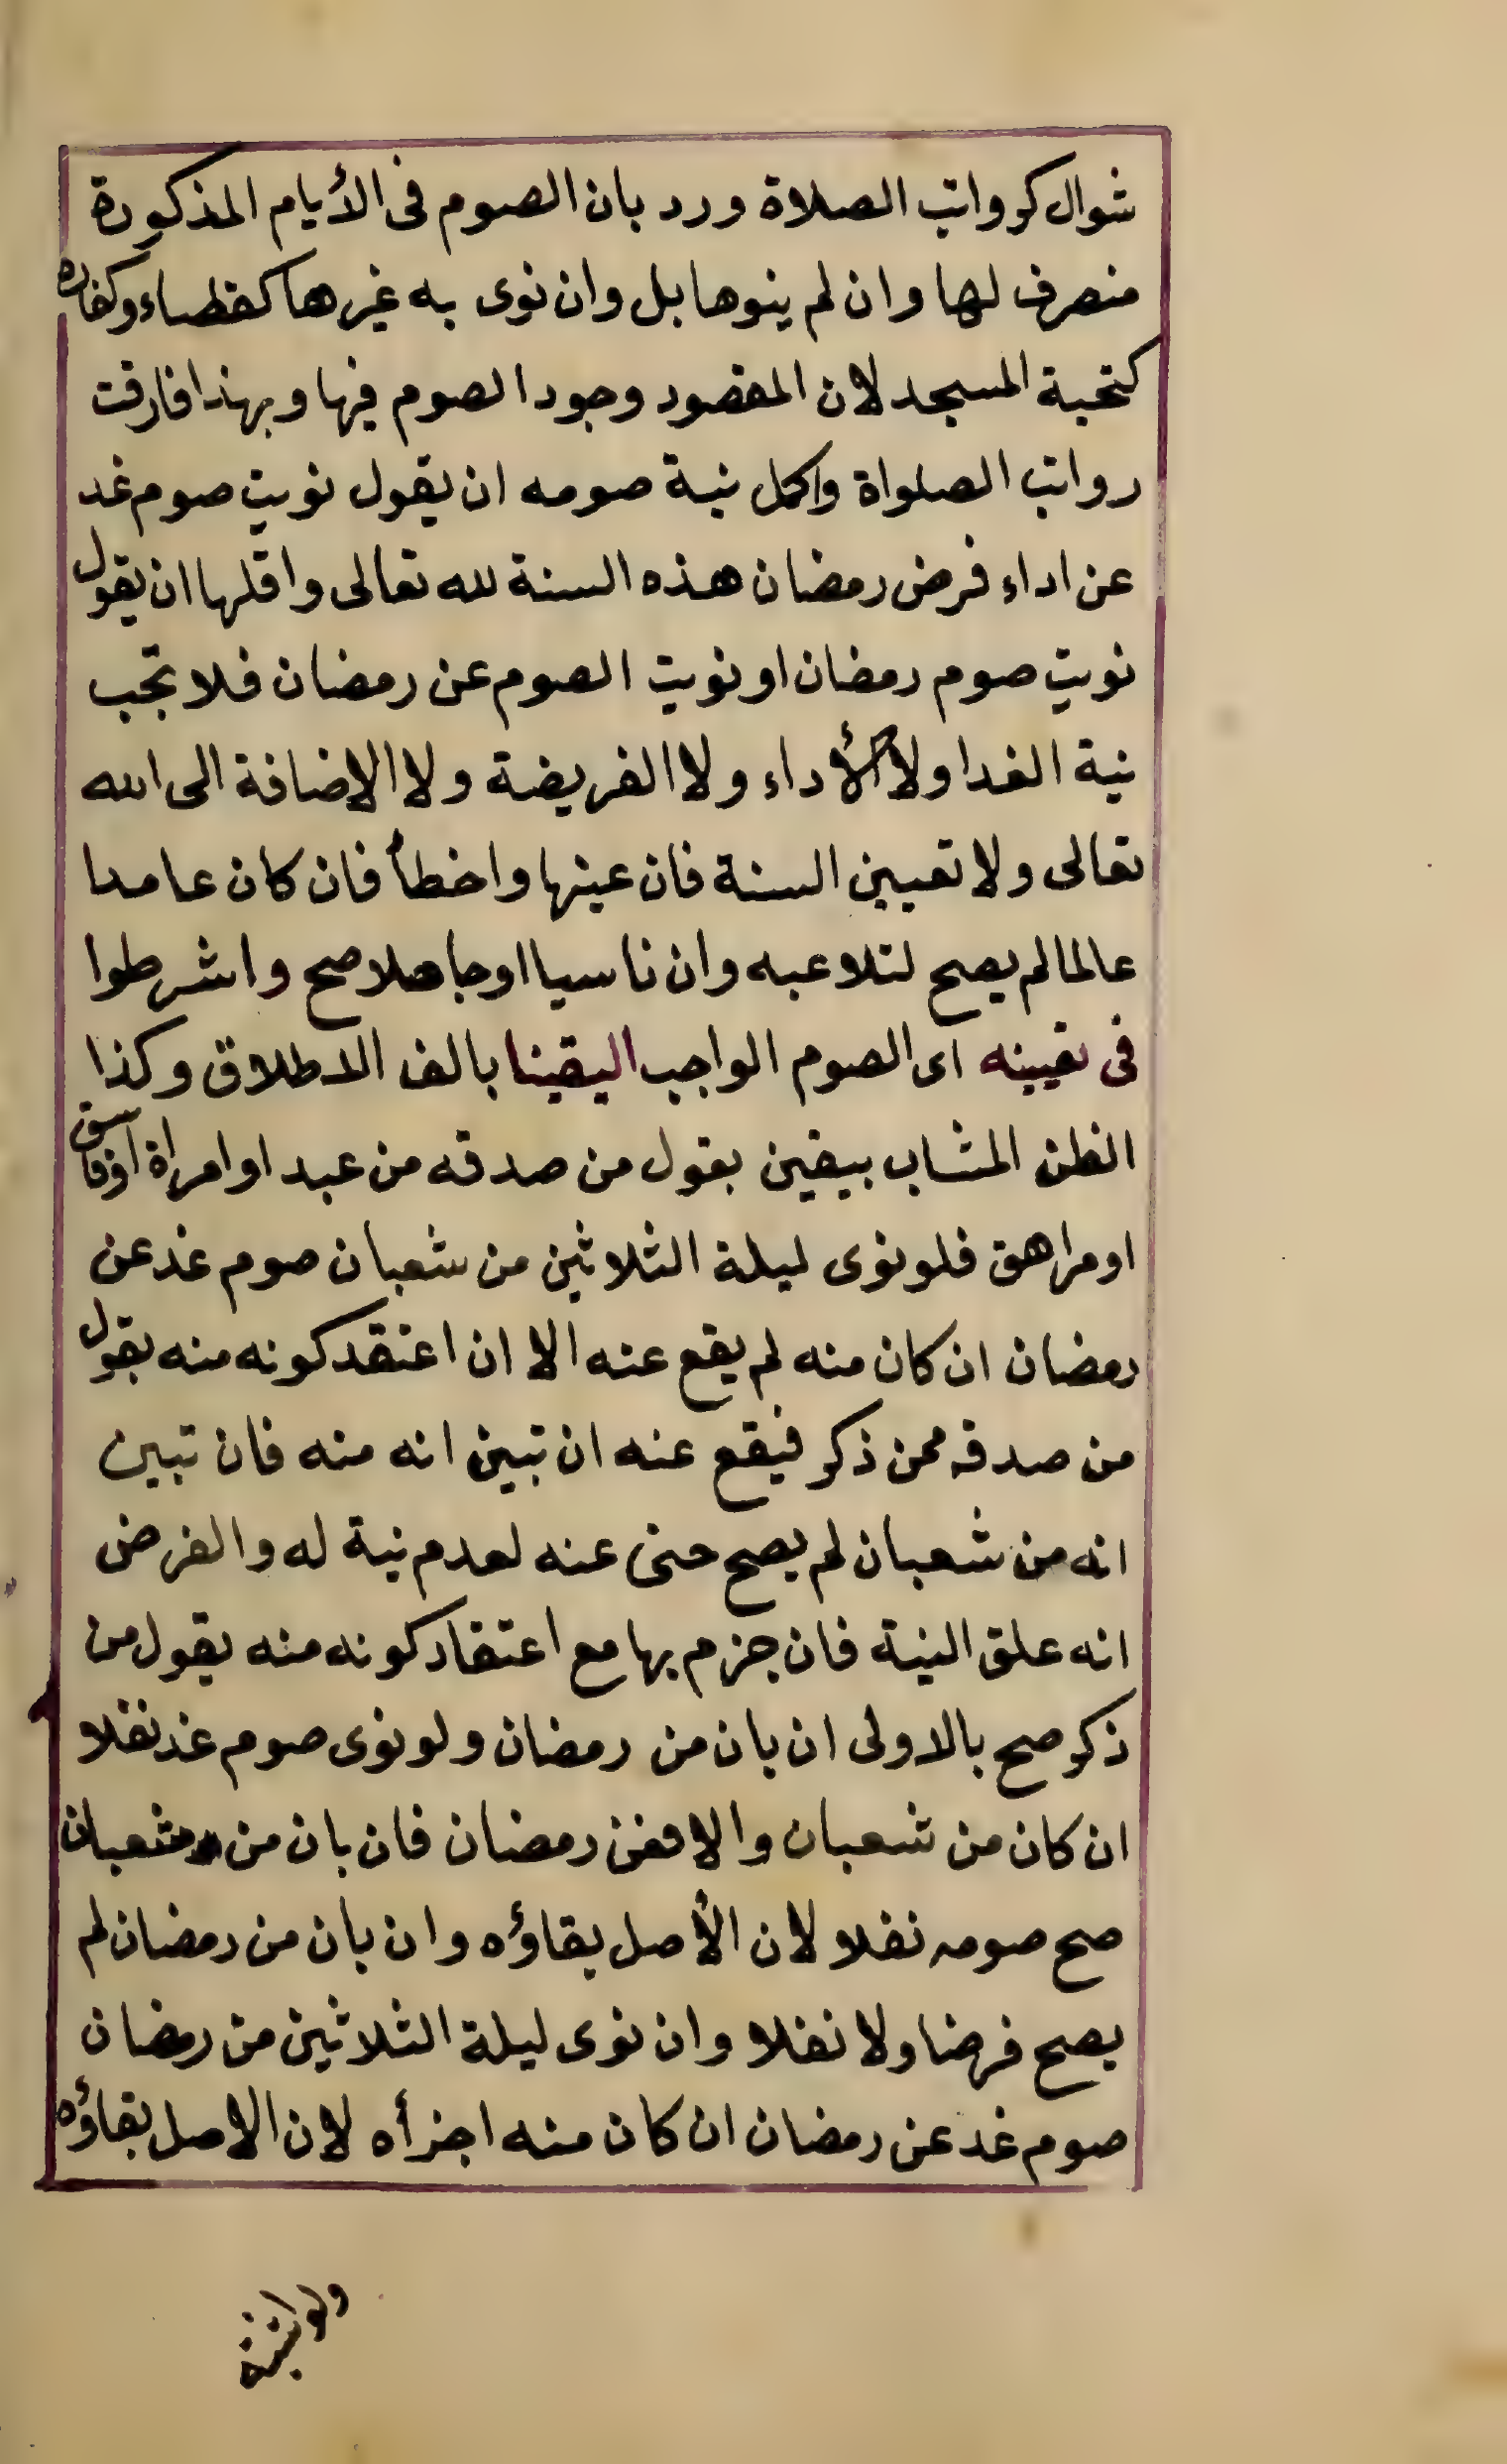 شوال كرواتب الصلاة ورد بان الصوم فى الأيام المذكورة
منصرف لها وان لم ينوها بل وان نوى به غيرها كقضاء وكفارة
كتحية المسجد لان المقصود وجود الصوم فيها وبهذا فارقت
رواتب الصلواة واكمل نية صومه ان يقول نويت صوم غد
عن اداء فرض رمضان هذه السنة لله تعالى واقلها ان يقول
نويت صوم رمضان او نويت الصوم عن رمضان فلا تجب
نية الغدا ولا الأداء ولا الفريضة ولا الاضافة الى الله
تعالى ولا تعيين السنة فان عينها واخطأ فان كان عامدا
عالما لم يصح لتلاعبه وان ناسيا او جاهلا صح واشرطوا
فى تعيينه اى الصوم الواجب اليقينا بالف الاطلاق وكذا
الظن المشاب بيقين بقول من صدقه من عبد او امراة اوفاسق
او مراهق فلو نوى ليلة الثلاثين من شعبان صوم غد عن
رمضان ان كان منه لم يقع عنه الا ان اعتقد كونه منه بقول
من صدقه ممن ذكر فيقع عنه ان تبين انه منه فان تبين
انه من شعبان لم يصح حتى عنه لعدم نية له والفرض
انه علق النية فان جزم بها مع اعتقاد كونه منه بقول من
ذكر صح بالاولى ان بان من رمضان ولو نوى صوم غد نفلا
ان كان من شعبان والا فمن رمضان فان بان من شعبان
صح صومه نفلا لان الأصل بقاؤه وان بان من رمضان لم
يصح فرضا ولا نفلا وان نوى ليلة الثلاثين من رمضان
صوم غد عن رمضان ان كان منه اجزأه لان الاصل بقاؤه